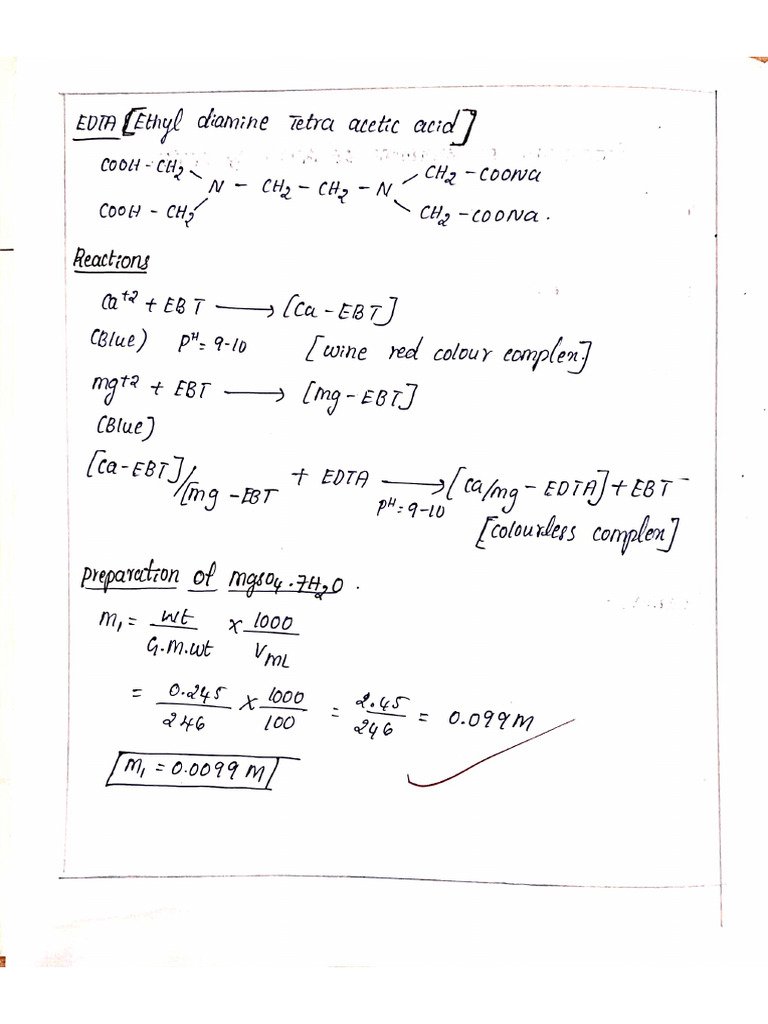 EDTA [Ethyl diamine Tetra acetic acid]
COOH - CH2
N - CH2 - CH2 - N
CH2 - COONa
COOH - CH2
CH2 - COONa.
Reactions
Ca+2 + EBT ⟶ [Ca - EBT]
(Blue) PH = 9-10 [wine red colour complex.]
mg+2 + EBT ⟶ [mg - EBT]
(Blue)
[Ca-EBT]/[mg -EBT + EDTA ⟶ [Ca/mg - EDTA] + EBT-
PH = 9-10
[colourless complex]
preparation of mgso4.7H2O.
M1 = wt / G.M.wt x 1000 / VML
= 0.245 / 246 x 1000 / 100 = 2.45 / 246 = 0.099M
M1 = 0.0099 M